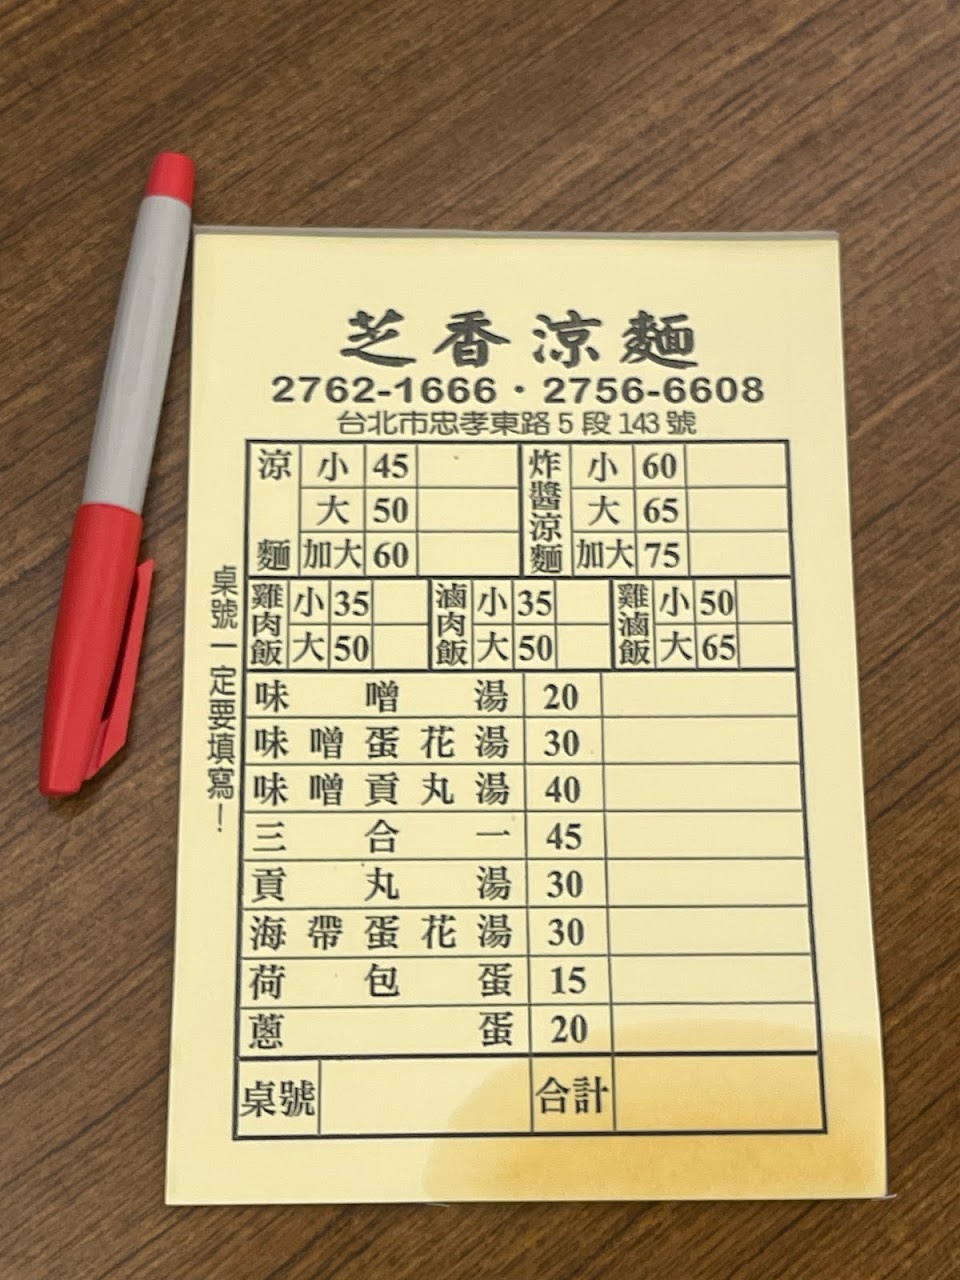 芝香涼麵
2762-1666・2756-6608
台北市忠孝東路5段143號
涼麵 小 45 炸醬涼麵 小 60
大 50 大 65
加大 60 加大 75
雞肉飯 小 35 滷肉飯 小 35 雞滷飯 小 50
大 50 大 50 大 65
味噌湯 20
味噌蛋花湯 30
味噌貢丸湯 40
三合一 45
貢丸湯 30
海帶蛋花湯 30
荷包蛋 15
蔥蛋 20
桌號 合計
桌號一定要填寫!